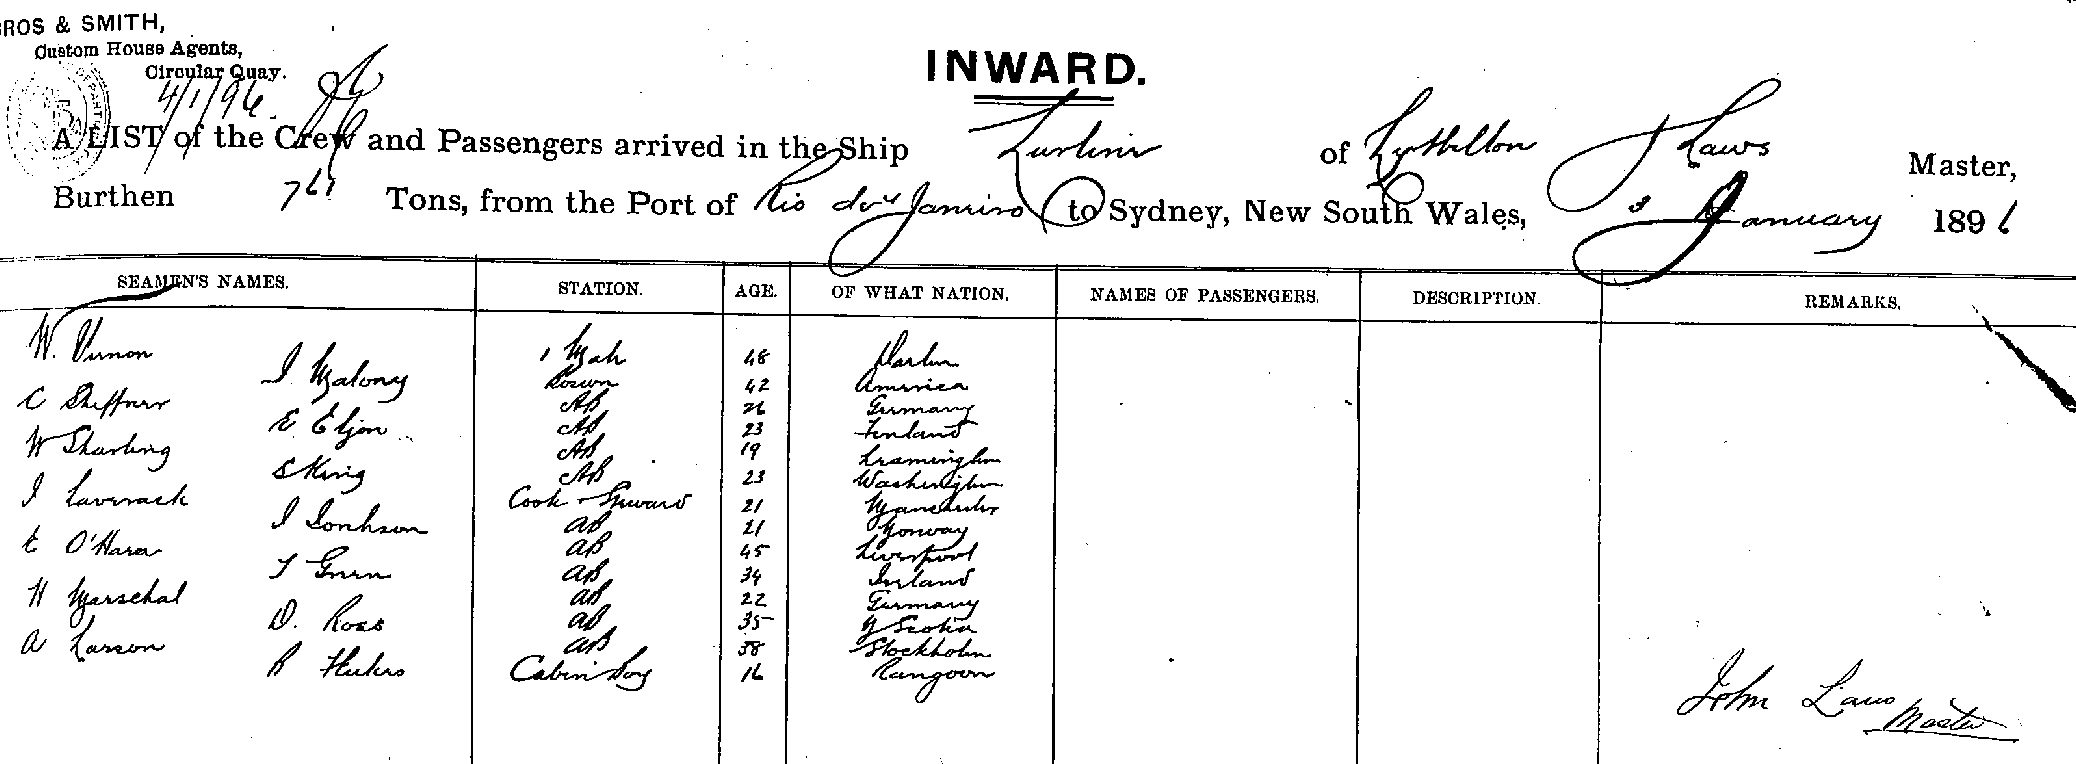 BROS & SMITH,
Custom House Agents,
Circular Quay.
4/1/96.
INWARD.
A LIST of the Crew and Passengers arrived in the Ship Lurline of Lyttelton J Laws Master,
Burthen 761 Tons, from the Port of Rio de Janeiro to Sydney, New South Wales, 3 January 1896
SEAMEN'S NAMES. STATION. AGE. OF WHAT NATION. NAMES OF PASSENGERS. DESCRIPTION. REMARKS.
W. Vernon 1 Mate 48 Harlem
J Malony Bosun 42 America
C Sheffner AB 26 Germany
E Eljon AB 23 Finland
W Sharling AB 19 Leamington
S King AB 23 Washington
J Laverack Cook & Steward 21 Manchester
J Jonhson AB 21 Norway
E O'Hara AB 45 Liverpool
T Green AB 34 Ireland
H Marschal AB 22 Germany
D. Ross AB 35 N Scotia
A Larson AB 38 Stockholm
R Cabin Boy 16 Rangoon
John Laws
Master